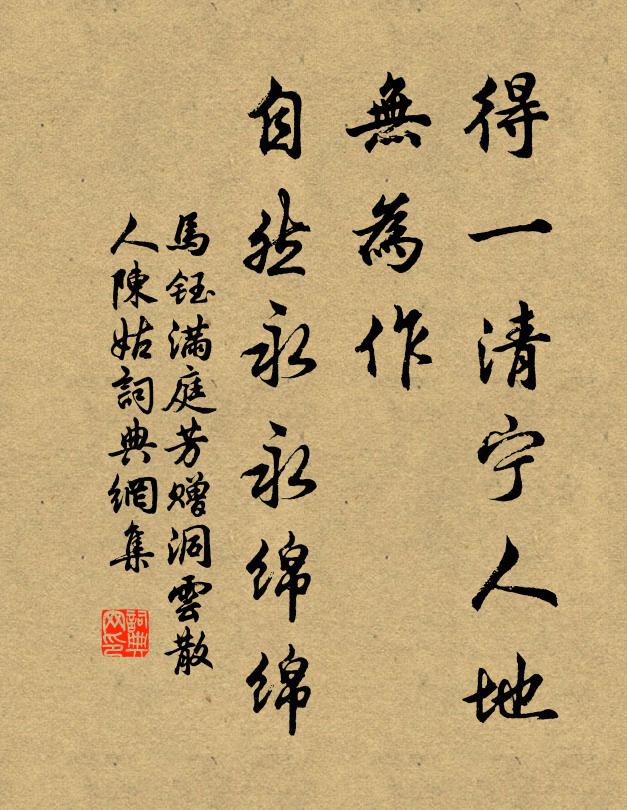 得一清宁人地
無為作
自然永永绵绵
馬鈺滿庭芳赠洞雲散
人陳姑詞典網集
詞典
网印